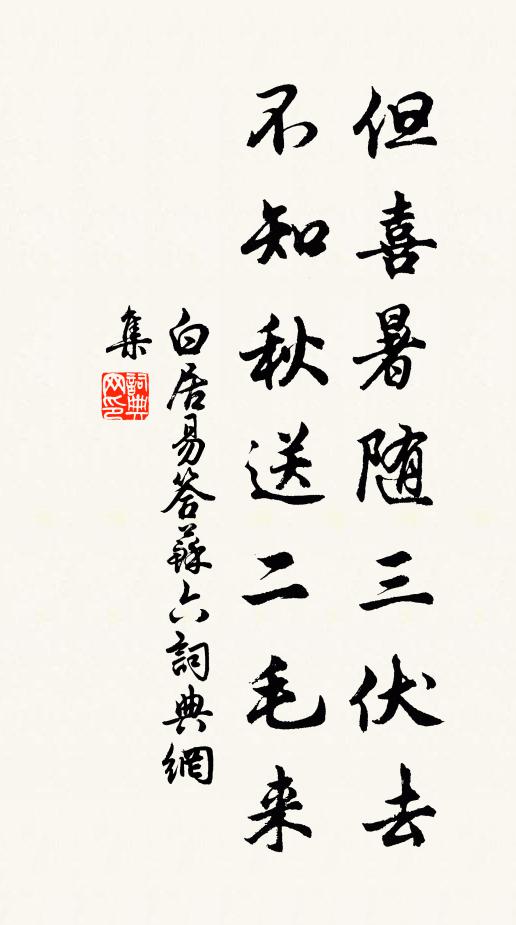 但喜暑随三伏去
不知秋送二毛来
白居易答蘇六詞典網
集
詞典网印